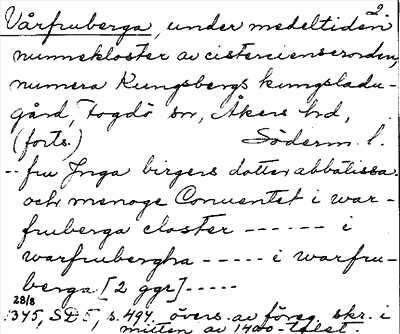 2.
Vårfruberga, under medeltiden
nunnekloster av cistercienserorden,
numera Kungsbergs kungsladu-
gård, Fogdö sn, Åkers hd,
(forts.) Söderm. l.
-- fru Jnga birgers dotter abbatissa
och menoge Conuentet i war-
fruberga closter ------ i
warfrubergha ----- i warfru-
berga [2 ggr] -----
28/8
1345, SD 5, s. 494. övers. av föreg. skr. i
mitten av 1400-talet.